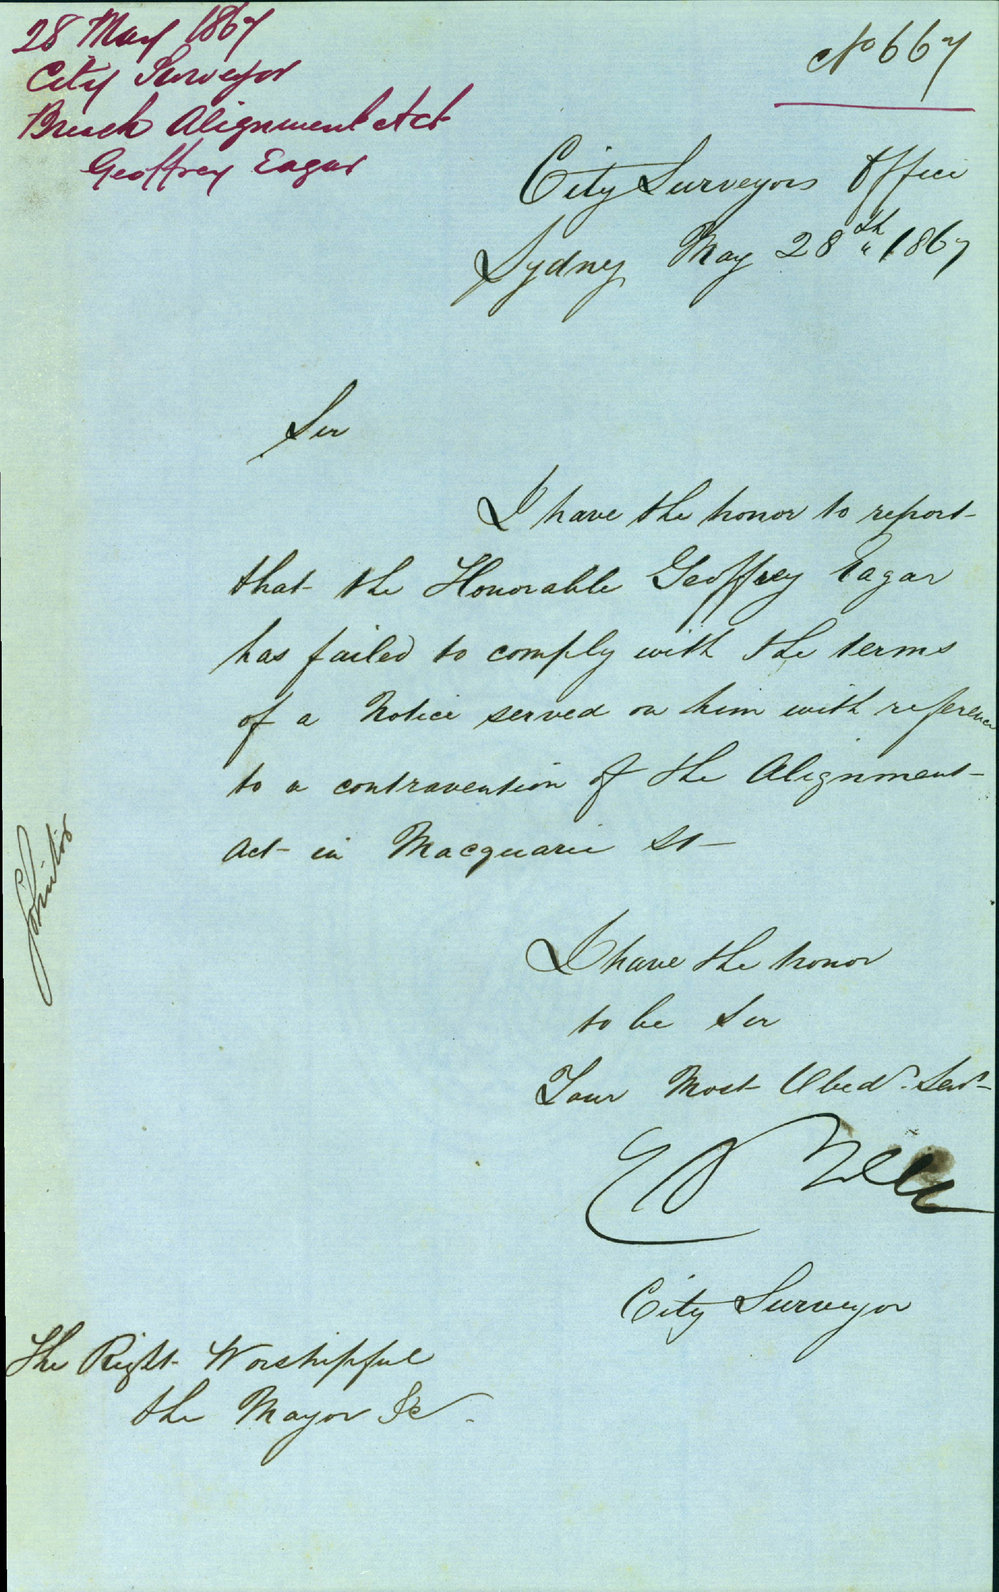 28 May 1867
City Surveyor
Breach Alignment Act
Geoffrey Eagar
No 667
City Surveyors Office
Sydney May 28th 1867
Sir
I have the honor to report
that the Honorable Geoffrey Eagar
has failed to comply with the terms
of a Notice served on him with reference
to a contravention of the Alignment
Act in Macquarie St
Solicitor
I have the honor
to be Sir
Your Most Obedt. Servt
City Surveyor
The Right Worshipful
the Mayor &c